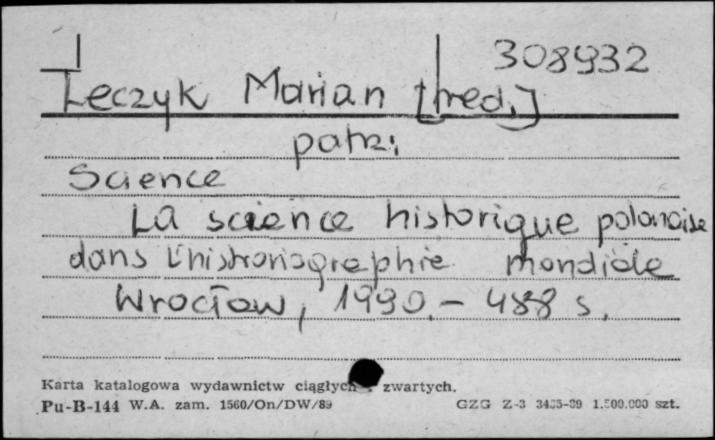 308932
Leczyk Marian [red.]
patrz:
Science
La science historique polonaise
dans l'historiographie mondiale
Wrocław, 1990. - 488 s.
Karta katalogowa wydawnictw ciągłych zwartych.
Pu-B-144 W.A. zam. 1560/On/DW/89 GZG Z-3 szt.